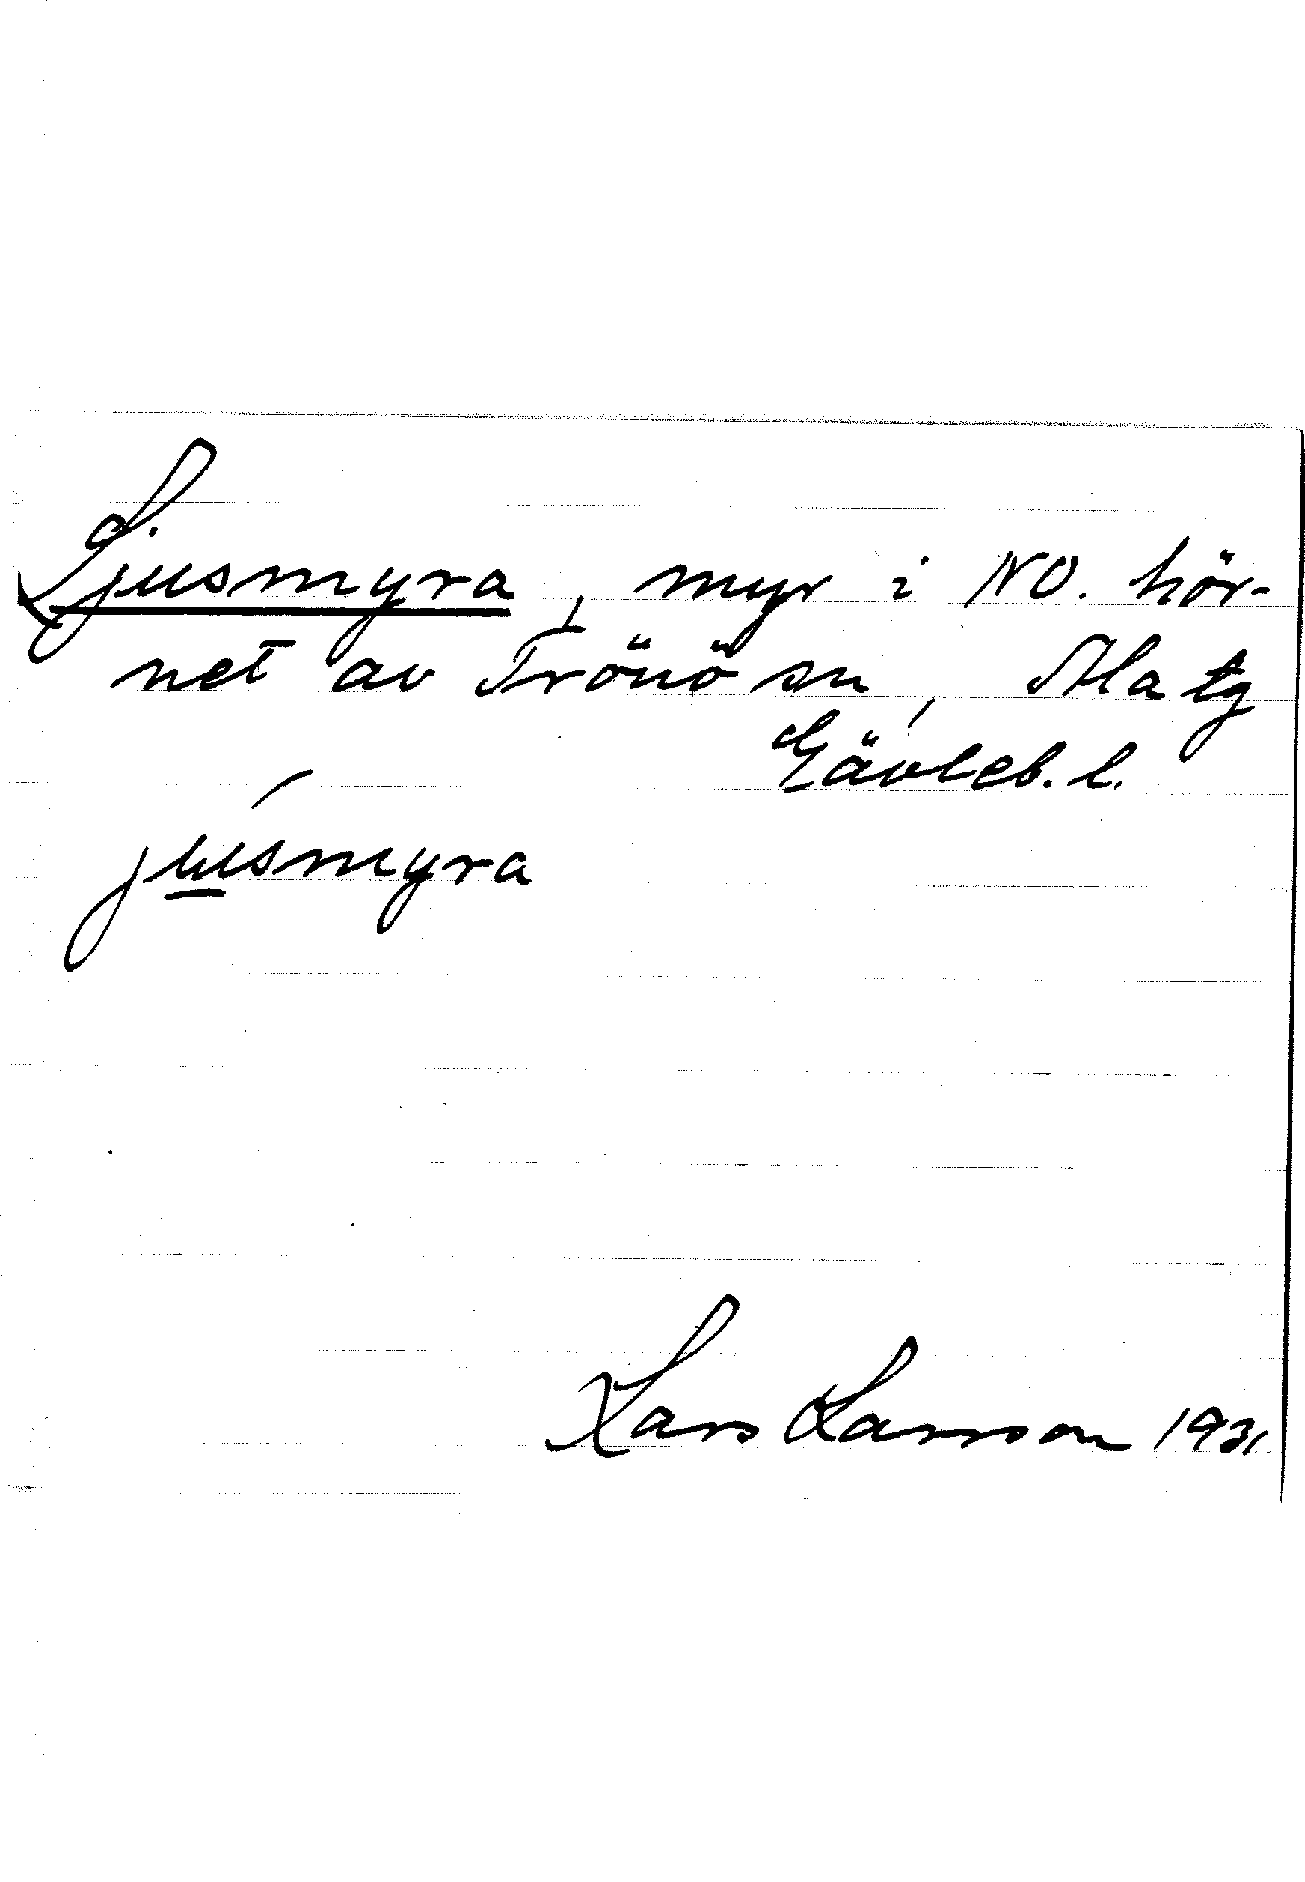 Ljusmyra, myr i NO. hör-
net av Trönö sn, Ala tg
Gävleb. l.
jusmyra
Lars Larsson 1931